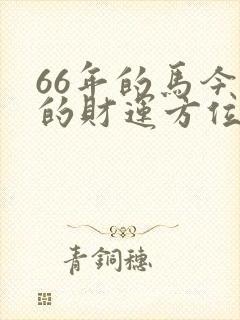 66年的馬今
的財運方位
青銅穗